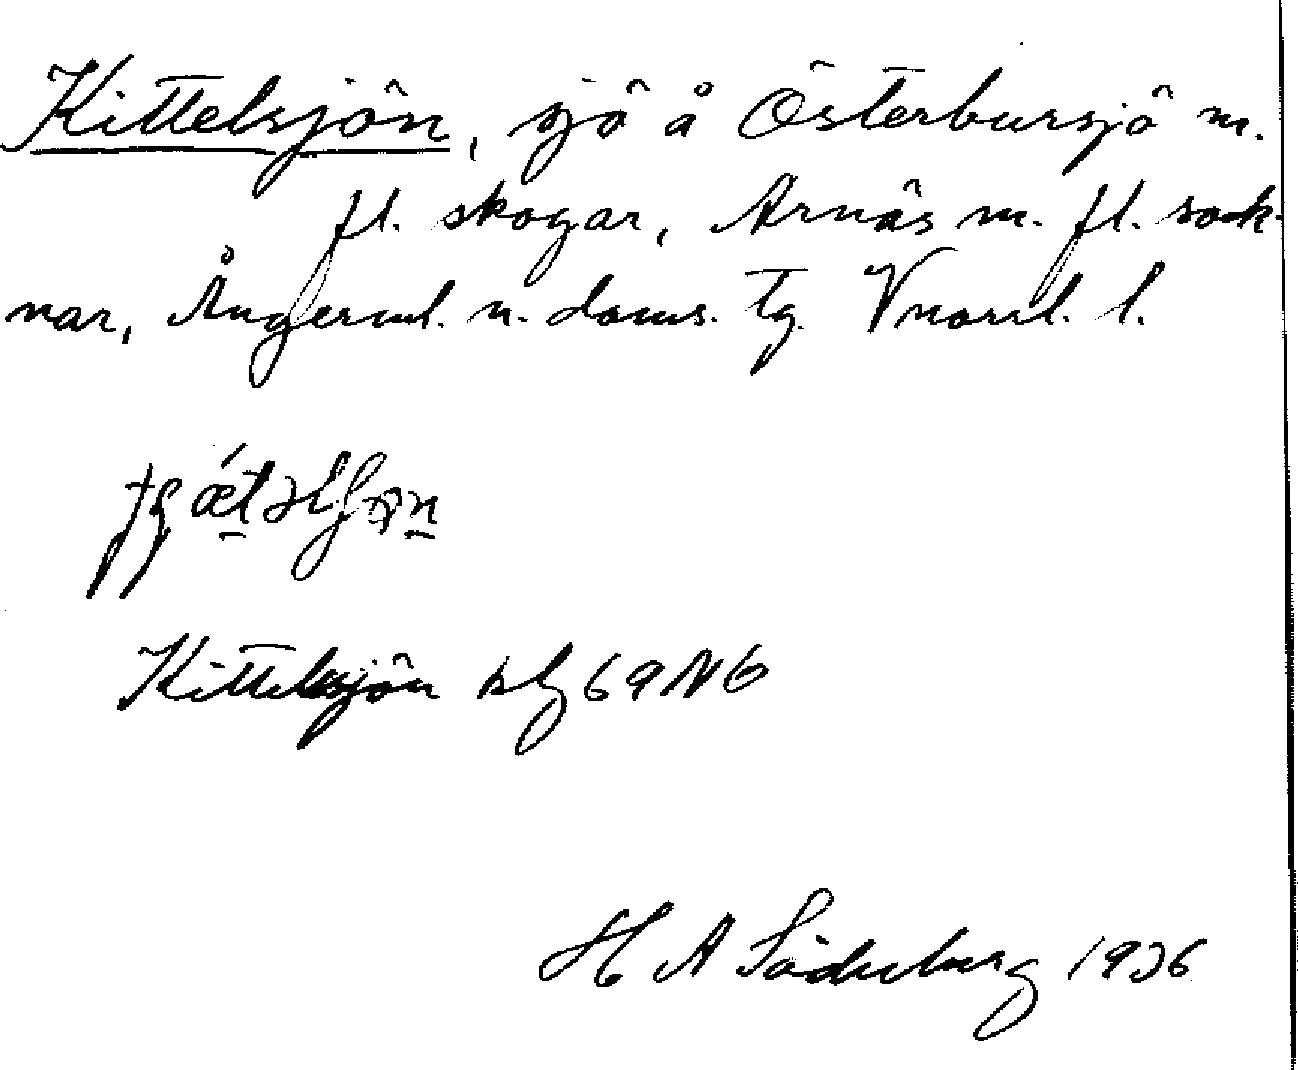 Kittelsjön, sjö å Östersbursjö m.
fl. skogar, Arnäs m. fl. sock-
nar, Ångerml. n. doms. tg. Vnorrl. l.
Kittelsjön blz 69 NO
H A Söderberg 1936